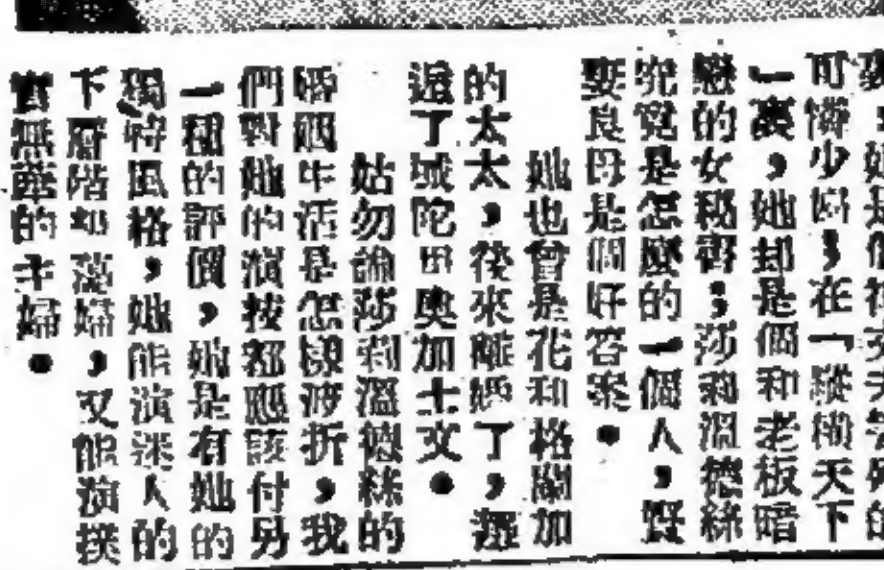 裏；她是個
可憐少婦，在「縱橫天下
」裏，她却是個和老板暗
戀的女秘書；莎莉溫德絲
究竟是怎麼的一個人，賢
妻良母是個好答案。
她也曾是花和格蘭加
的太太，後來離婚了，還
了城陀田奧加士文。
姑勿論莎莉溫德絲的
婚姻生活是怎樣波折，我
們對她的演技都應該付另
一種的評價，她是有她的
獨特風格，她能演迷人的
下層階級蕩婦，又能演樸
實無華的主婦。